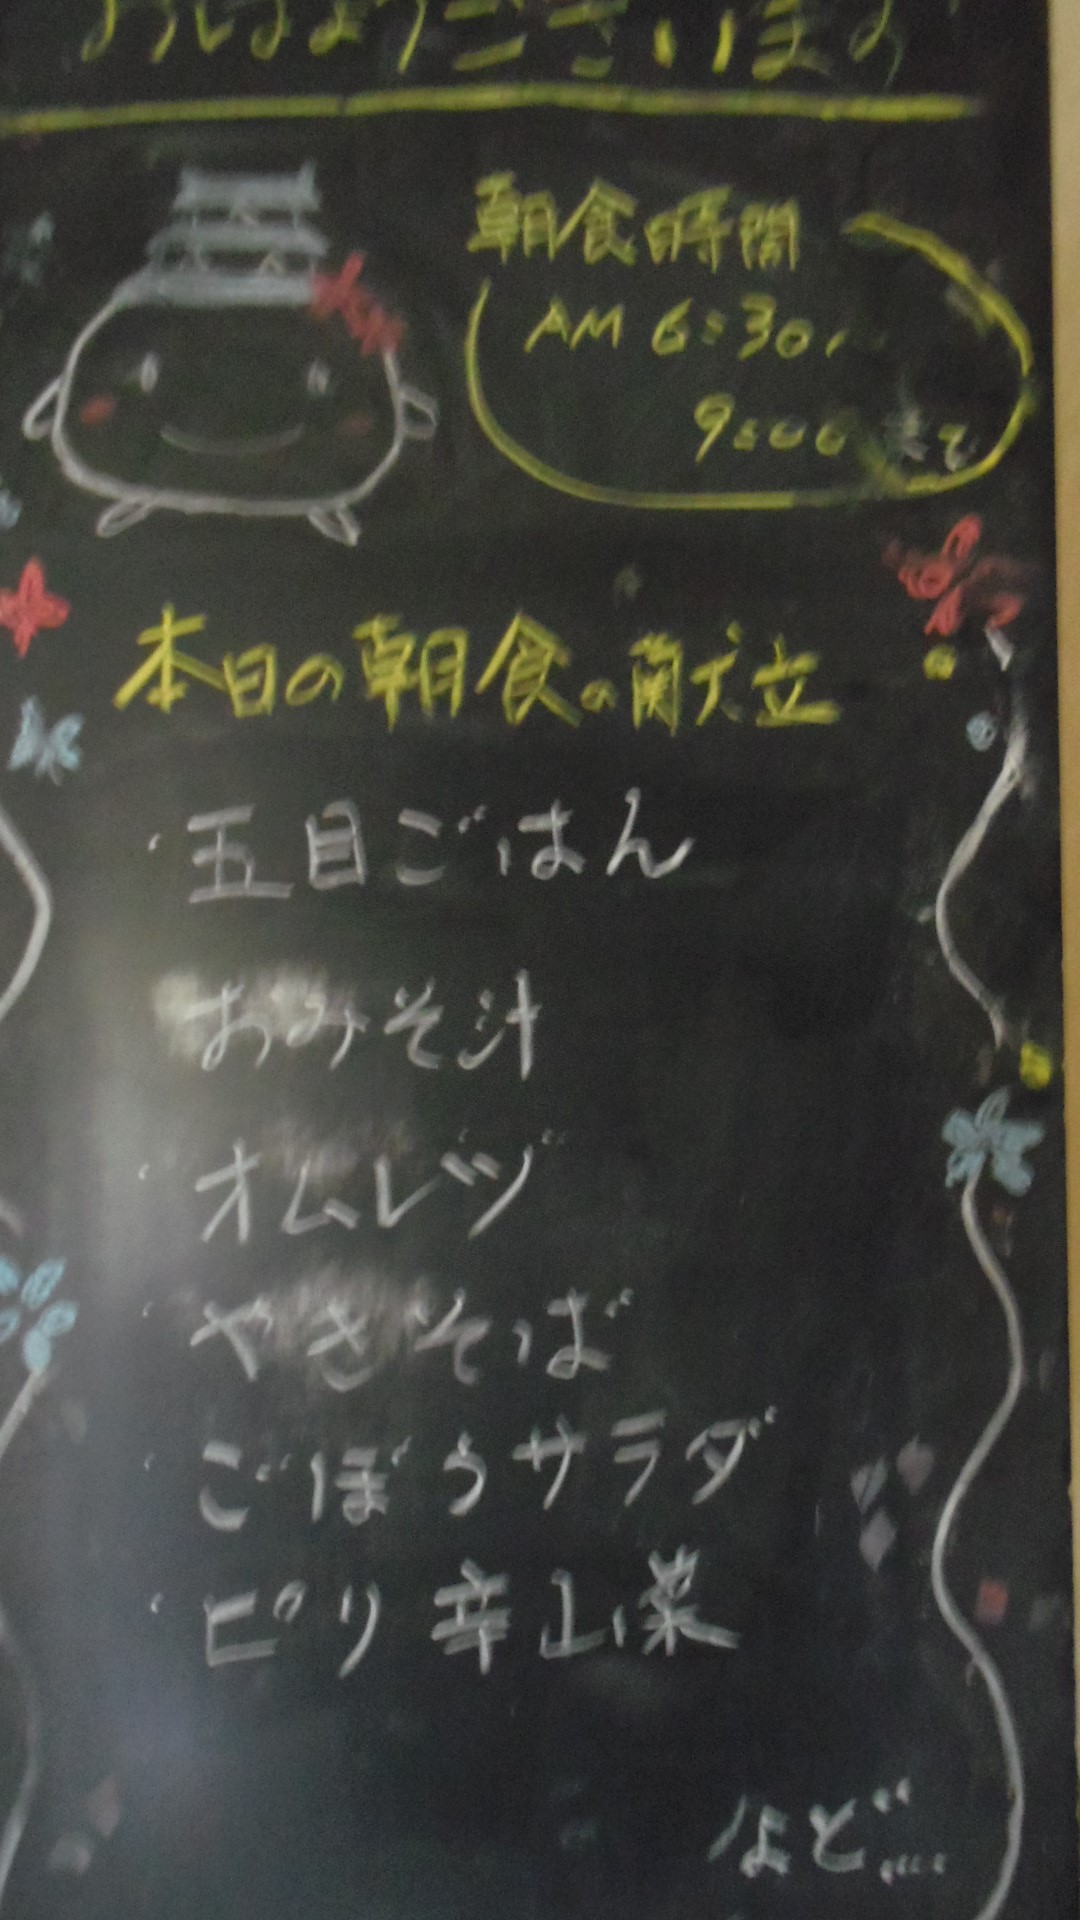 おはようございます
朝食時間
AM 6:30〜
9:00まで
本日の朝食の献立
・五目ごはん
おみそ汁
・オムレツ
・やきそば
・ごぼうサラダ
・ピリ辛山菜
など…